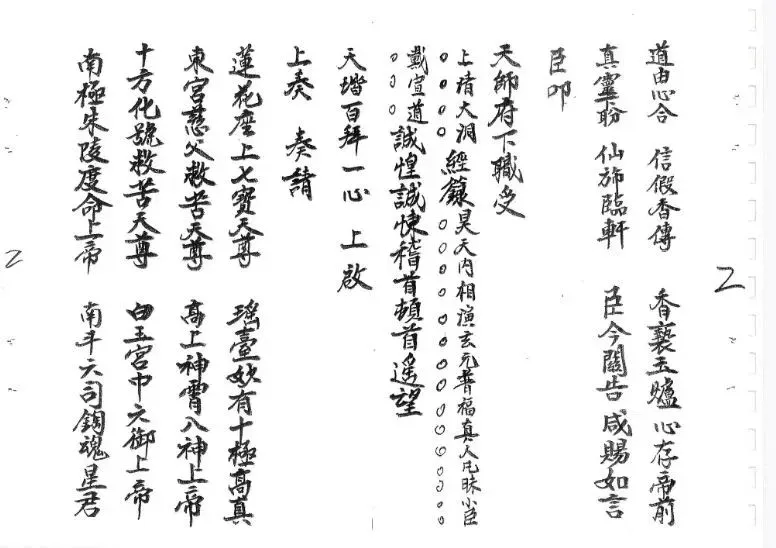 道由心合 信假香傳 香褻玉爐 心存帝前
真靈盼 仙斾臨軒 臣今關告 咸賜如言
臣叩
天師府下職受
上清大洞經籙昊天內相演玄元普福真人凡昧小臣
戴宣道誠惶誠悚稽首頓首遙望
天堦百拜一心 上啟
上奏 奏請
蓮花座上七寶天尊 瑤臺妙有十極高真
東宮慈父救苦天尊 高上神霄八神上帝
十方化號救苦天尊 白玉宮中六御上帝
南極朱陵度命上帝 南斗六司魂星君
2
2